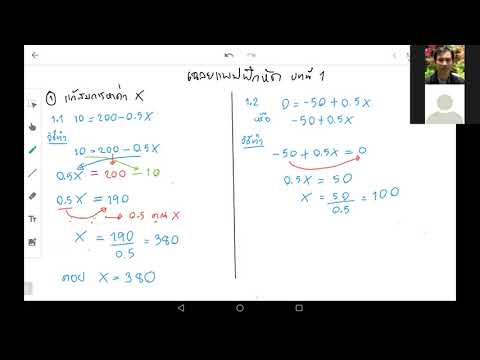 เฉลยแบบฝึกหัด บทที่ 1
① แก้สมการหาค่า X
1.1 10 = 200 - 0.5X
วิธีทำ
10 = 200 - 0.5X
0.5X = 200 - 10
0.5X = 190
0.5 คูณ X
X = 190/0.5 = 380
ตอบ X = 380
1.2 0 = -50 + 0.5X
หรือ -50 + 0.5X
วิธีทำ
-50 + 0.5X = 0
0.5X = 50
X = 50/0.5 = 100